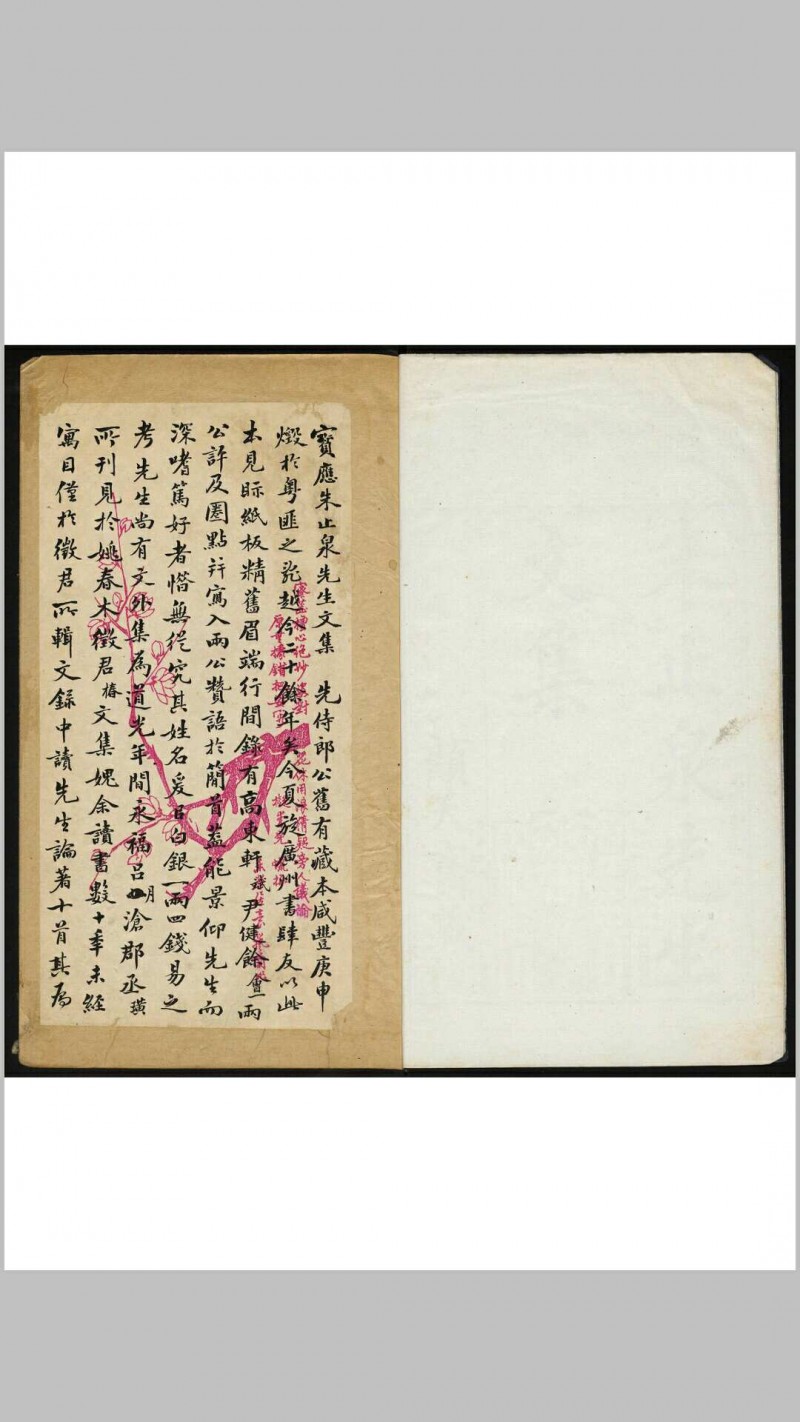 寶應朱止泉先生文集　先侍郎公舊有藏本咸豐庚申
燬於粵匪之亂越今二十餘年矣今夏旋廣州書肆友以此
本見眎紙板精舊眉端行間錄有高東軒斌尹健餘會一兩
公評及圈點并寫入兩公贊語於簡首蓋能景仰先生而
深嗜篤好者惜無從究其姓名爰㠯白銀一兩四錢易之
考先生尚有文外集為道光年間永福呂月滄郡丞璜
所刊見於姚春木徵君椿文集媿余讀書數十年未經
寓目僅於徵君所輯文錄中讀先生論著十首其為